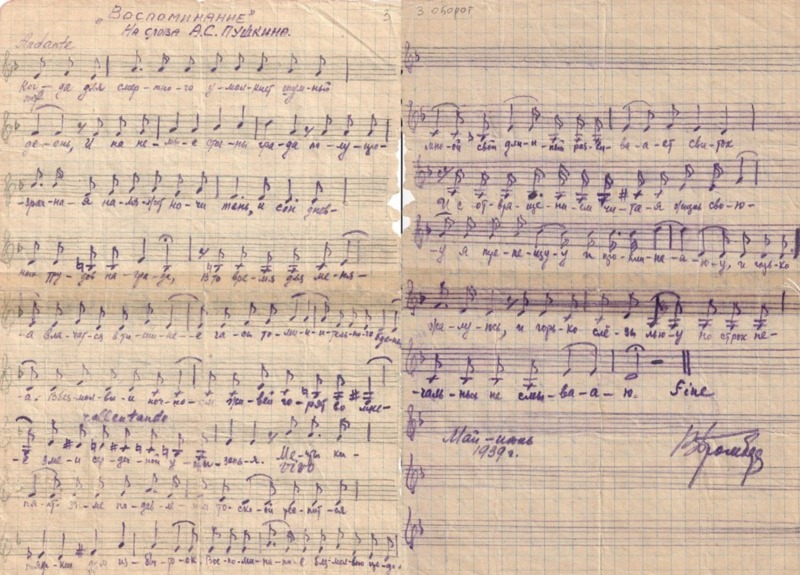 „Воспоминание"
На слова А.С. Пушкина.
3
Andante
Ког-да для смер-тно-го у-мол-кнет шум-ный
де-ень, И на не-мы-е сто-гны гра-да по-лу-про-
-зрач-на-я на-ля-жет но-чи тень, и сон днев-
ных тру-дов на-гра-да, В то вре-мя для ме-ня-
-а вла-чат-ся в ти-ши-не-е ча-сы то-ми-и-тель-но-го бде-нь
а. В без-мол-ви-и ноч-но-ом жи-вей го-рят во мне-
rallentando
-е зме-и сер-деч-ной у-гры-зень-я. Ме-чты ки-
vivo
пят в у-ме по-дав-лен тос-ко-ой
из-бы-ток. Вос-по-ми-на-нь-е без-мол-вно пре-до
3 оборот
мно-ой свой дли-и-нный раз-ви-ва-а-ет сви-ток
И с от-вра-ще-ни-ем чи-та-я жизнь сво-ю-
-у я тре-пе-щу-у и про-кли-на-а-ю-у, и горь-ко
жа-лу-юсь, и горь-ко слё-зы лью-у но строк пе-
-чаль-ных не смы-ва-а-ю. Fine
Май-июнь
1939г.